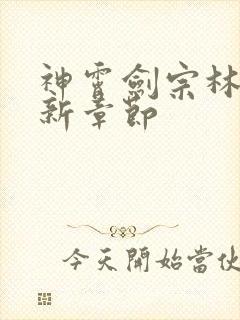 神霄劍宗林
新章節
今天開始當伙